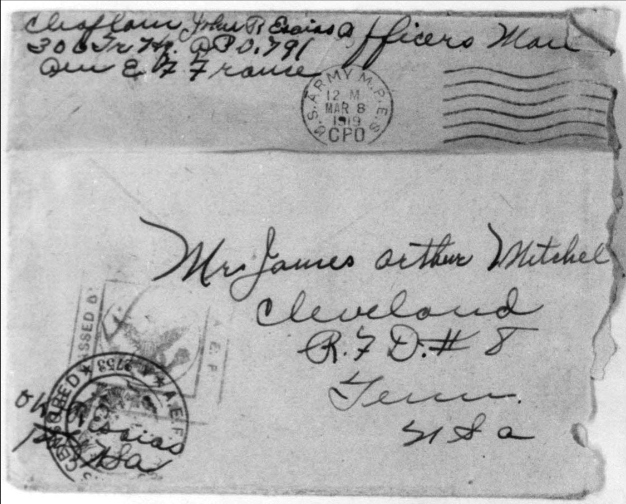 Chaplain John R Esaias Officers Mail
306 Tr Hq. APO. 791
Am E. F France
U.S. ARMY M.P.E.S.
12 M
MAR 8
1919
CPO
Mr James Arthur Mitchel
Cleveland
R. F D. # 8
Tenn.
U S a
PASSED BY
A. E. F
CENSORED
A.E.F.
OK
Esaias
USa